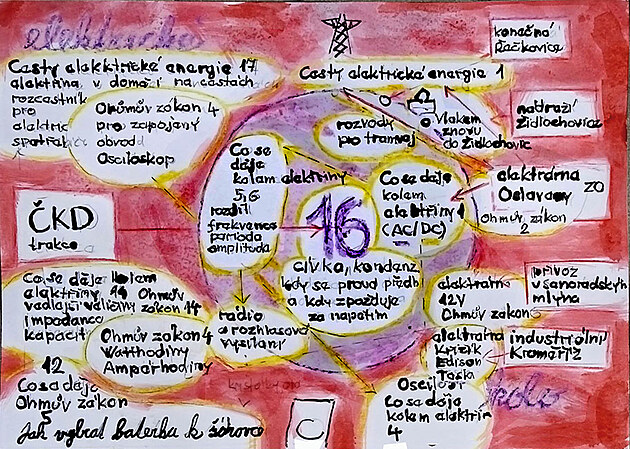 elektrické
Cesty elekktrické energie 17
elektřina v domě i na cestách
rozcestník
pro
elektric
spotřeb
Ohmův zákon 4
pro zapojený
obvod
Osciloskop
Cesty elekktrické energie 1
konečná
Řečkovice
Vlakem
znovu
do Židlochovic
nádraží
Židlochovice
rozvody
pro tramvaj
Co se
děje
kolem elektřiny
5,6
rozdíl
frekvence
perioda
amplituda
Co se děje
kolem
elektřiny 1
(AC/DC)
elektrárna
Oslavany
Ohmův zákon
2
ZO
ČKD
trakce
16
cívka, kondenz
kdy se proud předb
a kdy zpožďuje
za napětím
Co se děje kolem
elektřiny 14 Ohmův
vedlejší veličiny zákon 14
impedance
kapacit
rádio
a rozhlasové
vysílaní
elektrárna
12V
Ohmův zákon
přívoz
v Senoradských
mlýna
Ohmův zákon 4
Watthodiny
Ampérhodiny
elektrárna
Křižík
Edison
Tesla
industriální
Kroměříž
12
Co sa děje
Ohmův zákon
5
Jak vybrat baterku k
C
Co sa děje
kolem elektřin
4
kolo